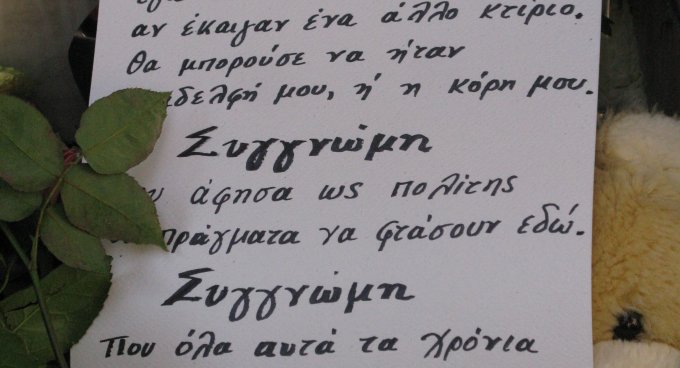 αν έκαιγαν ένα άλλο κτίριο.
θα μπορούσε να ήταν
μου, ή η κόρη μου.
Συγγνώμη
άφησα ως πολίτης
πράγματα να φτάσουν εδώ.
Συγγνώμη
Που όλα αυτά τα χρόνια